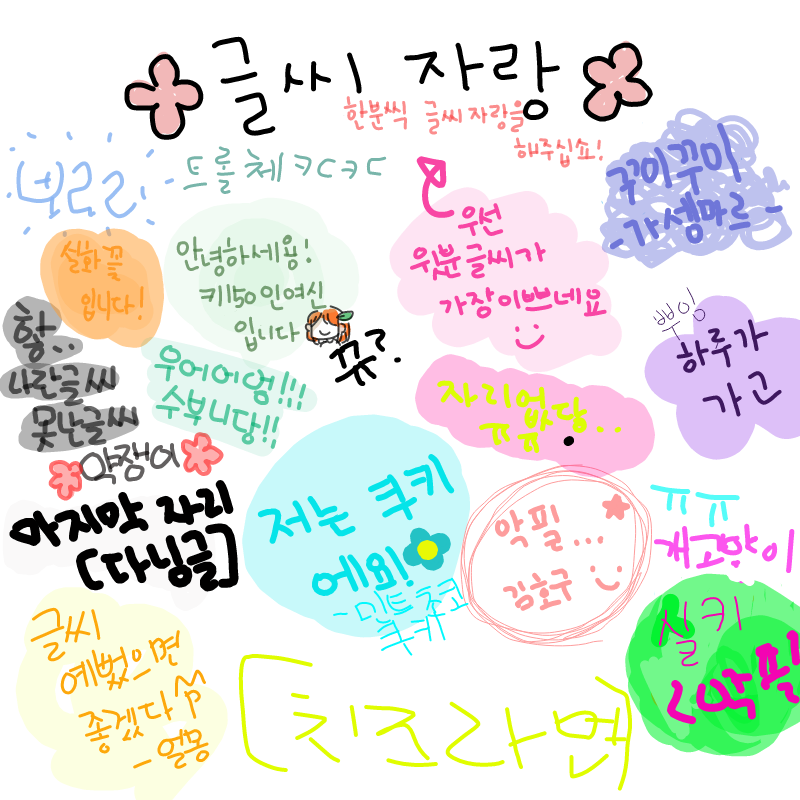 글씨 자랑
한분씩 글씨 자랑을
해주십쇼!
보라리
트롤체 ㅋㄷㅋㄷ
꾸미꾸미
-가셈마르-
실화 꽃
입니다!
안녕하세용!
키150인여신
입니다
우선
윗분글씨가
가장이쁘네요
뀨?
뿌잉
하루가
가고
항..
나란글씨
못난글씨
우어어엄!!!
수부니당!!
자리없당..
ㅠㅠ
약쟁이
마지막 자리
[다닝글]
저는 쿠키
에요!
-민트초코
쿠키
악필...
김호구
ㅠㅠ
개고양이
글씨
예뻤으면
좋겠다
-얼몽
실키
<악필
[치즈라면]